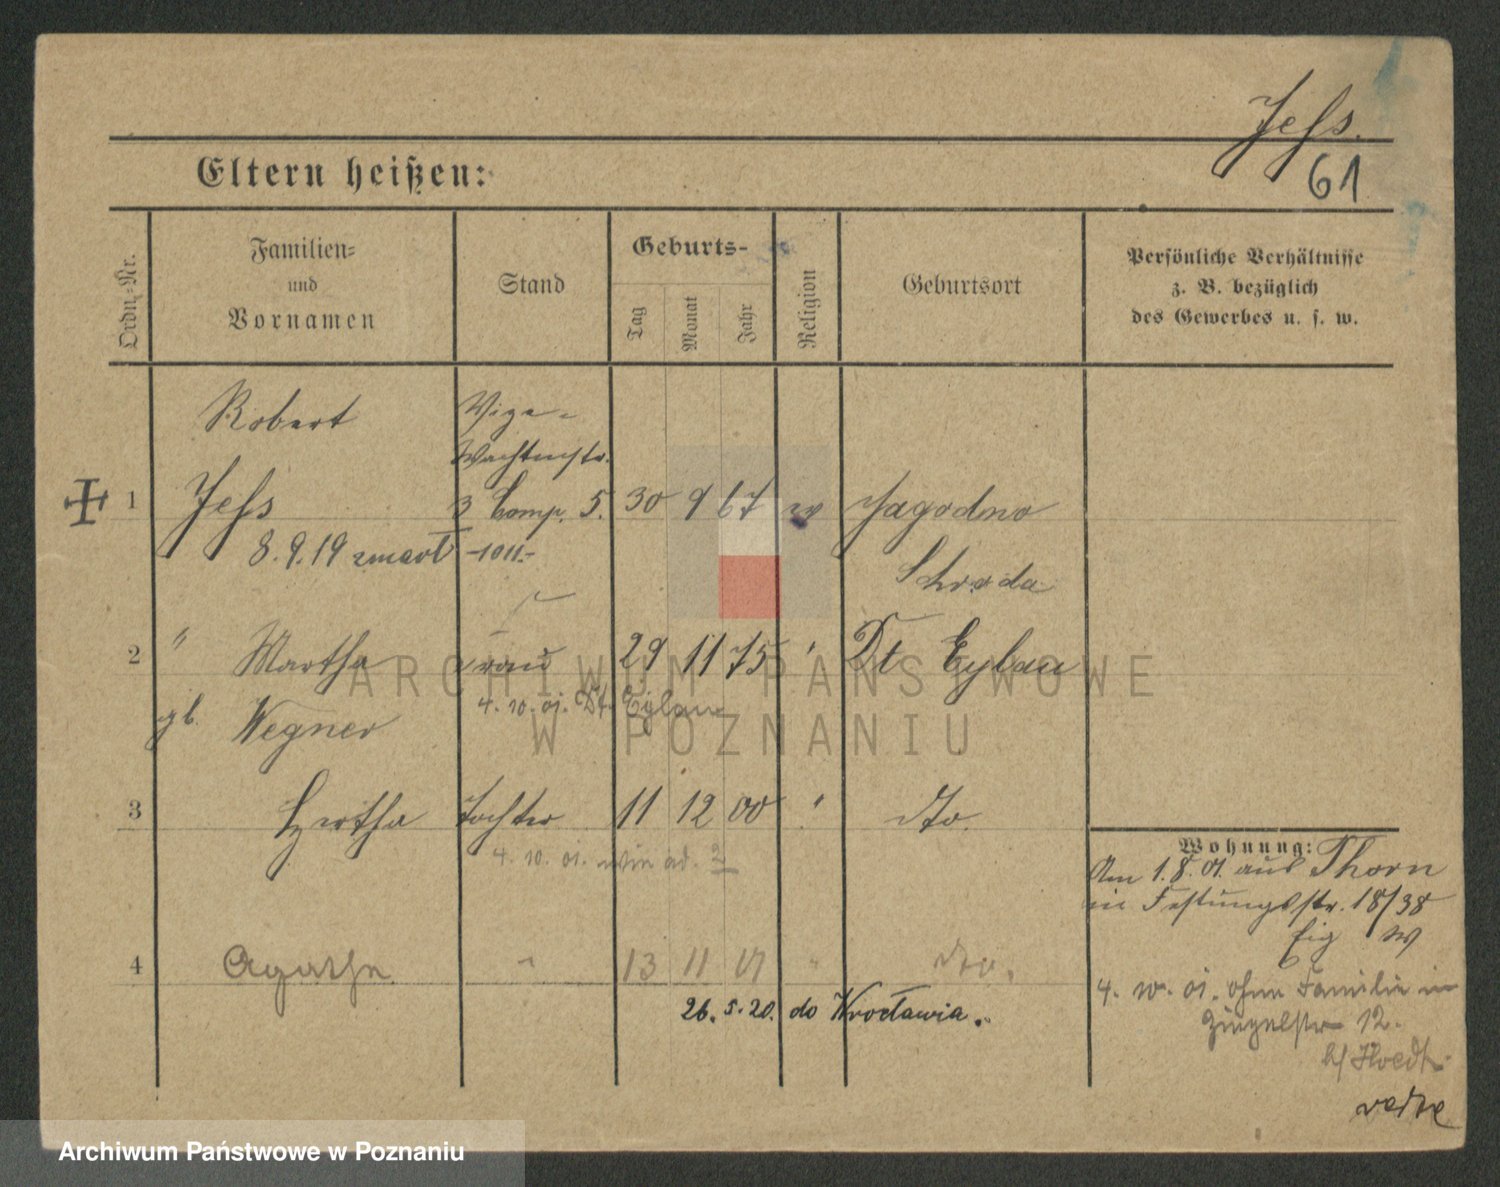 Jeß.
61
Eltern heißen:
Ordn.-Nr.
Familien-
und
Vornamen
Stand
Geburts-
Tag
Monat
Jahr
Religion
Geburtsort
Persönliche Verhältnisse
z. B. bezüglich
des Gewerbes u. s. w.
Robert
Vize-
Wachtmstr.
1 Jeß 3 Comp. 5. 30 9 67 Jagodno
8.9.19 zmarł
Schroda
2 " Martha Frau 29 11 75 " Dt Eylau
gb. Wegner 4.10.01. Dt. Eylau
3 Hertha Tochter 11 12 00 " dto.
4.10.01. wie ad. 2
Wohnung:
Am 1.8.01. aus Thorn
in Festungsstr. 18/38
4 Agathe " 13 11 " dto.
26.5.20. do Wrocławia.
4. 10. 01. ohne Familie in
12.
ARCHIWUM PAŃSTWOWE
W POZNANIU
Archiwum Państwowe w Poznaniu